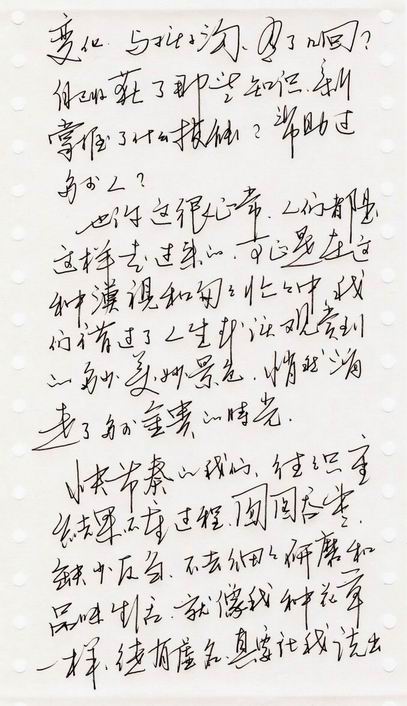 变化.与孩子沟.多了几回?
自己收获了那些知识.新
掌握了什么技能?帮助过
多少人?
也许这很正常.人们都是
这样走过来的.可正是在这
种漠视和匆匆忙忙中.我
们错过了人生本该观赏到
的多少美妙景色.悄然消
走了多少金贵的时光.
快节奏的我们.往往只重
结果不在过程.囫囵吞枣.
缺少反刍.不去细细研磨和
品味生活.就像我种花草
一样.徒有虚名.真要让我说出